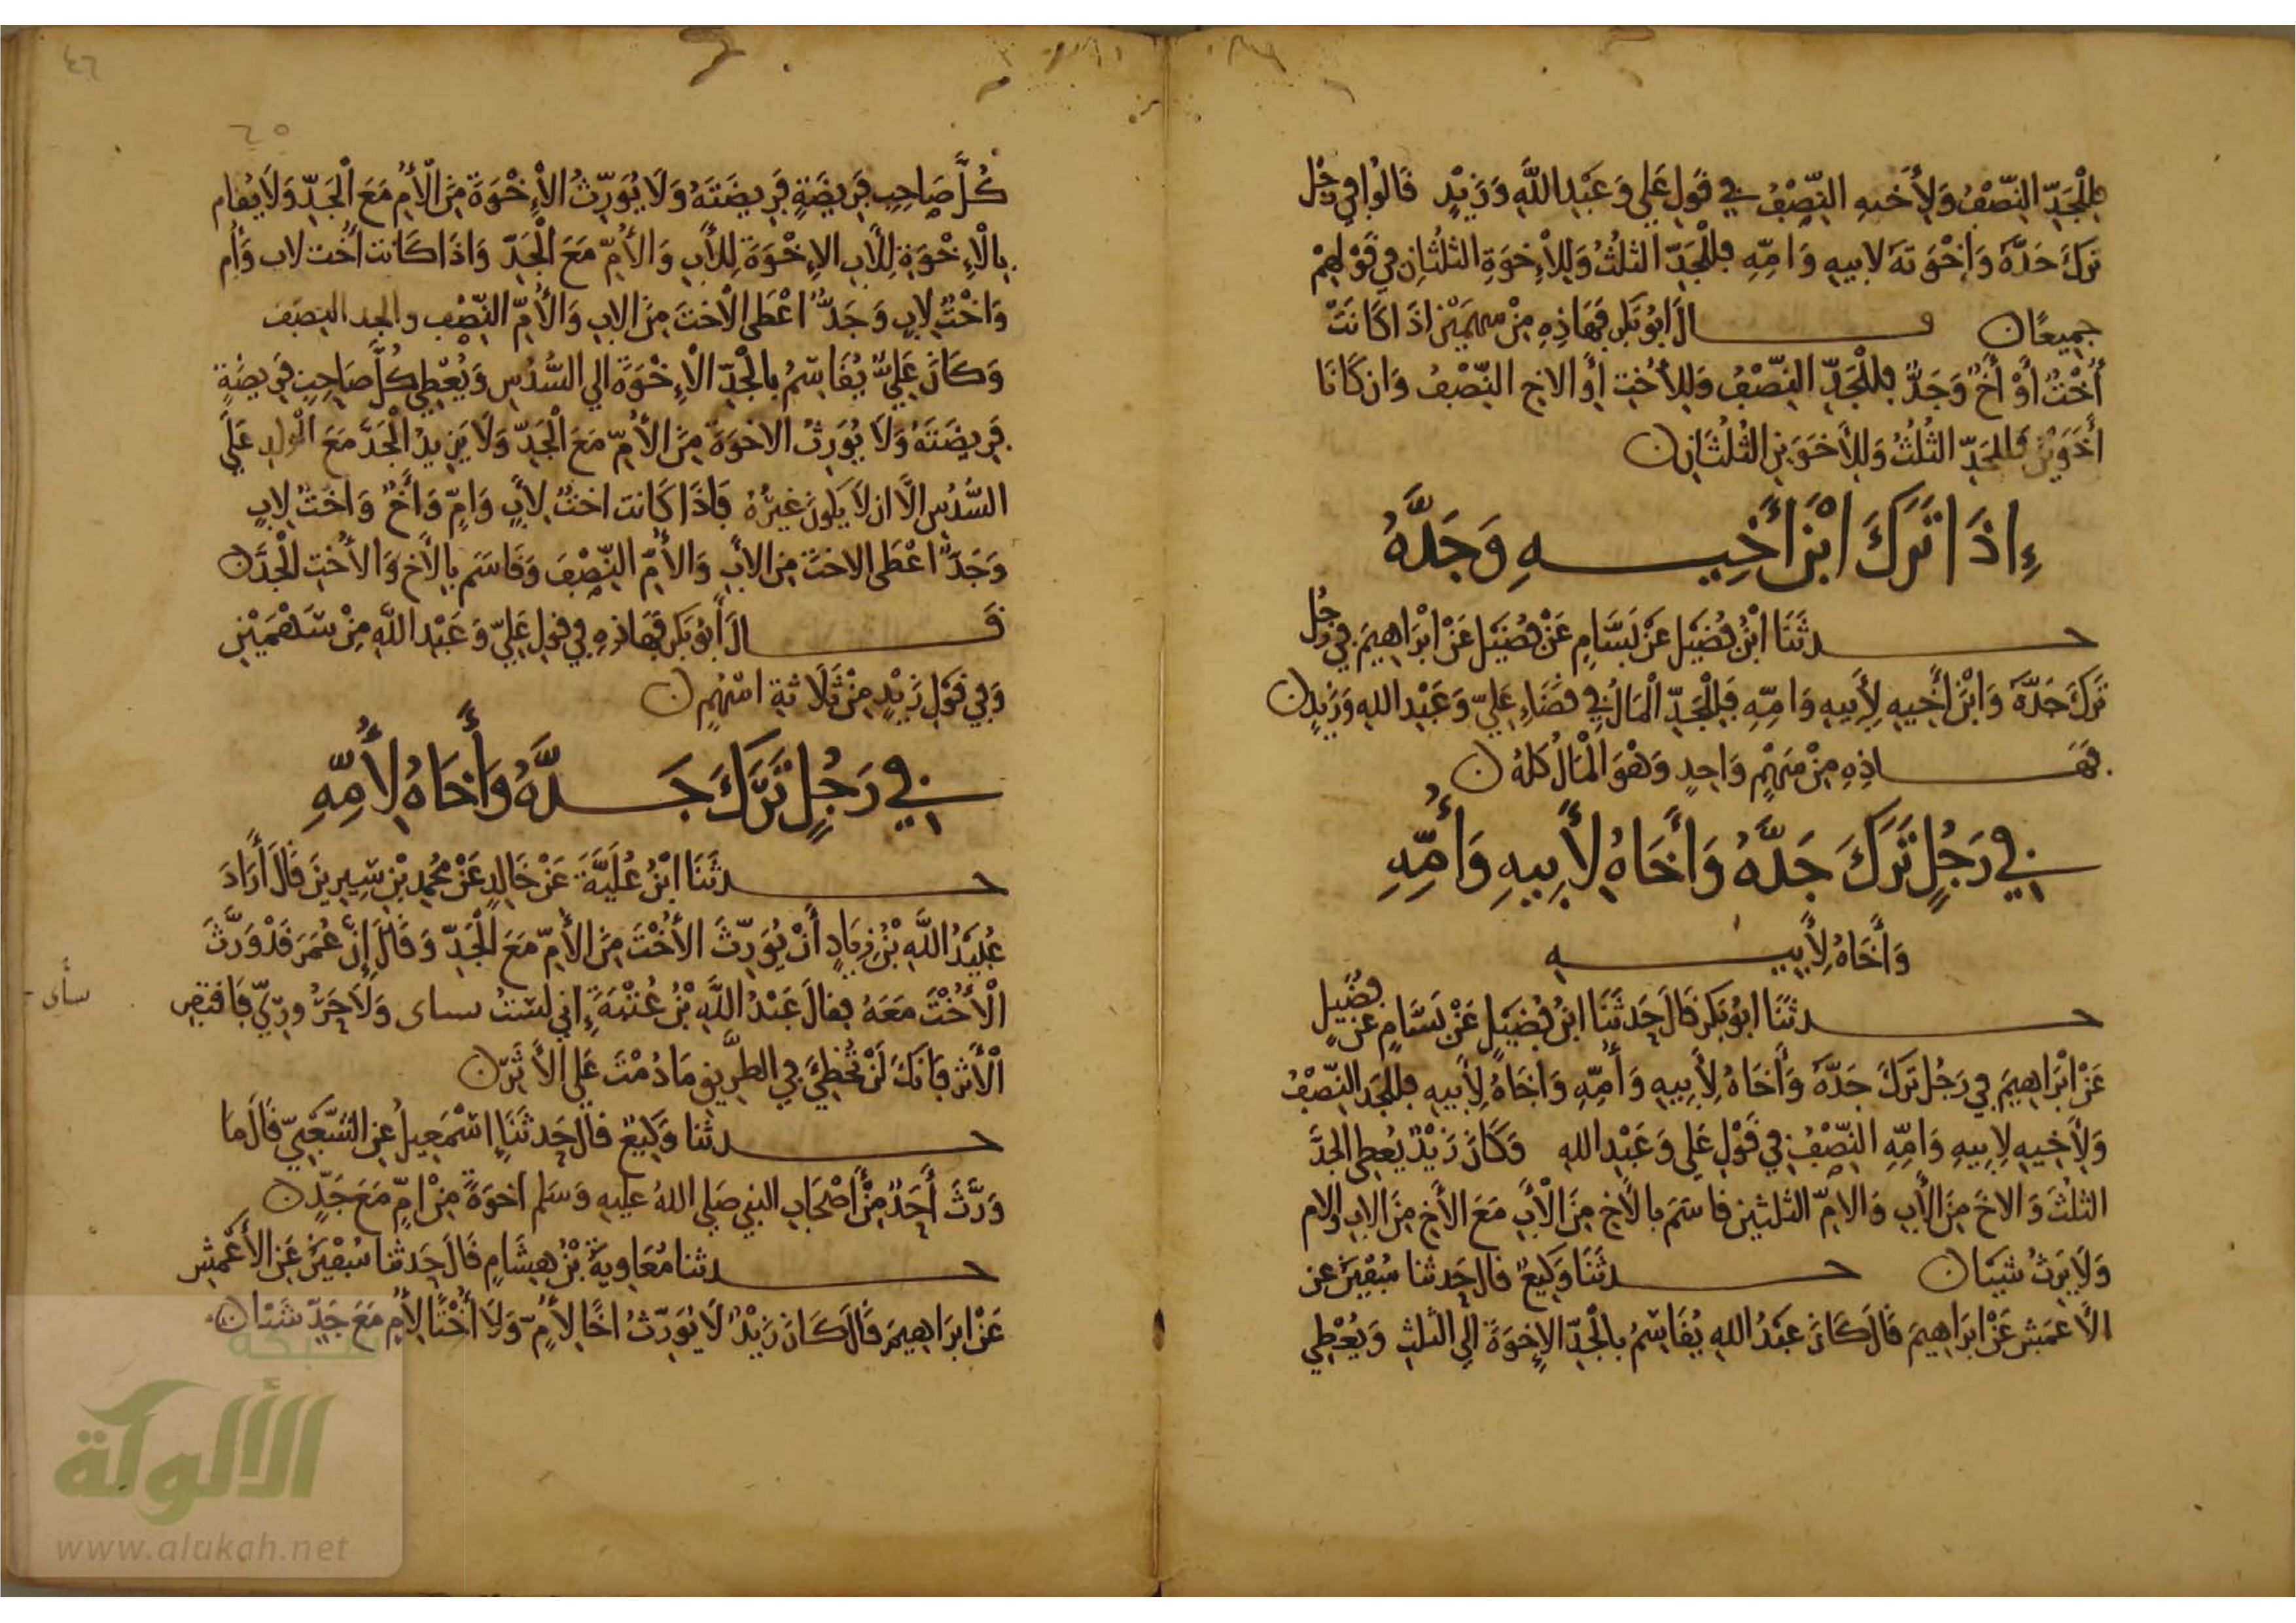 فللجد النصف ولأخيه النصف في قول علي وعبد الله وزيد قالوا في رجل
ترك جده وإخوته لابيه وامه فللجد الثلث وللإخوة الثلثان في قولهم
جميعا ن قال ابو بكر فهاذه من سهمين اذا كانت
أخت أو أخ وجد فللجد النصف وللأخت أو الاخ النصف وان كانا
أخوين فللجد الثلث وللأخوين الثلثان ن
إذا ترك ابن أخيه وجده
حدثنا ابن فضيل عن بسام عن فضيل عن ابراهيم في رجل
ترك جده وابن أخيه لأبيه وامه فللجد المال في قضاء علي وعبد الله وزيد ن
فهاذه من سهم واحد وهو المال كله ن
في رجل ترك جده وأخاه لأبيه وأمه
وأخاه لأبيه
حدثنا ابو بكر قال حدثنا ابن فضيل عن بسام عن فضيل
عن ابراهيم في رجل ترك جده وأخاه لأبيه وأمه واخاه لأبيه فللجد النصف
ولأخيه لابيه وامه النصف في قول علي وعبد الله وكان زيد يعطي الجد
الثلث والاخ من الأب والام الثلثين قاسم بالأخ من الأب مع الأخ من الاب والام
ولا يرث شيئا ن حدثنا وكيع قال حدثنا سفين عن
الأعمش عن ابراهيم قال كان عبد الله يقاسم بالجد الإخوة الي الثلث ويعطي
كل صاحب فريضة فريضته ولا يورث الإخوة من الأم مع الجد ولا يقاسم
بالإخوة للأب الإخوة للأب والأم مع الجد واذا كانت أخت لاب وأم
واخت لاب وجد اعطى الاخت من الاب والأم النصف والجد النصف
وكان علي يقاسم بالجد الإخوة الي السدس ويعطي كل صاحب فريضة
فريضته ولا يورث الاخوة من الأم مع الجد ولا يزيد الجد مع الولد علي
السدس الا ان لا يكون غيره فاذا كانت اخت لاب وام وأخ واخت لاب
وجد اعطى الاخت من الأب والأم النصف وقاسم بالأخ والأخت الجد ن
قال أبو بكر فهاذه في قول علي وعبد الله من سهمين
وفي قول زيد من ثلاثة اسهم ن
في رجل ترك جده وأخاه لأمه
حدثنا ابن علية عن خالد عن محمد بن سيرين قال أراد
عبيد الله بن زياد أن يورث الأخت من الأم مع الجد وقال إن عمر قد ورث
الأخت معه فقال عبد الله بن عتبة إني لست بساى ولا حروري فاقتص
سأى
الأثر فانك لن تخطئ في الطريق ما دمت علي الأثر ن
حدثنا وكيع قال حدثنا إسمعيل عن الشعبي قال ما
ورث أحد من أصحاب النبي صلي الله عليه وسلم اخوة من ام مع جد ن
حدثنا معاوية بن هشام قال حدثنا سفين عن الأعمش
عن ابراهيم قال كان زيد لا يورث اخا لأم ولا أختا لأم مع جد شيئا ن
٤٦
شبكة
الألوكة
www.alukah.net